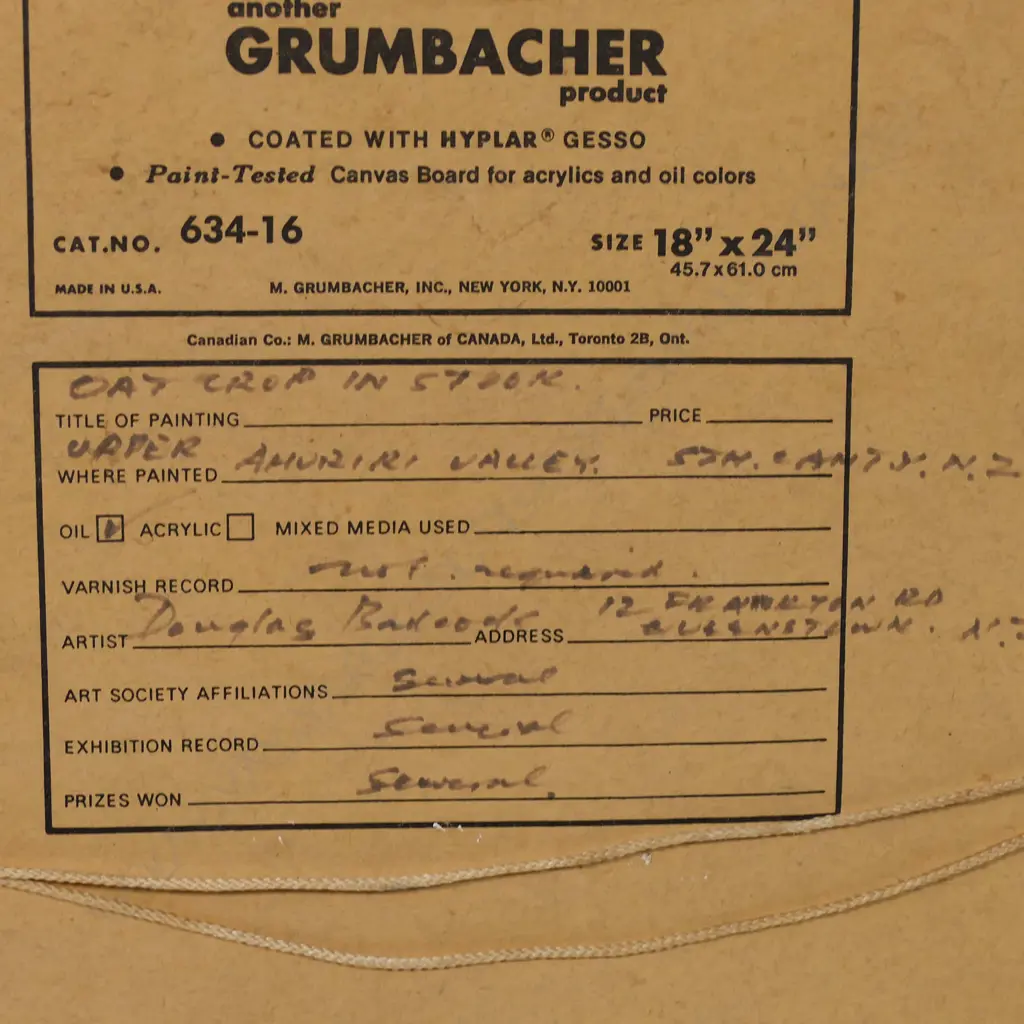 another
GRUMBACHER
product
• COATED WITH HYPLAR® GESSO
• Paint-Tested Canvas Board for acrylics and oil colors
CAT.NO. 634-16 SIZE 18" x 24"
45.7x61.0 cm
MADE IN U.S.A. M. GRUMBACHER, INC., NEW YORK, N.Y. 10001
Canadian Co.: M. GRUMBACHER of CANADA, Ltd., Toronto 2B, Ont.
OAT CROP IN STOOK.
TITLE OF PAINTING PRICE
UPPER AHURIRI VALLEY. STH. CANTY. N.Z
WHERE PAINTED
OIL ACRYLIC MIXED MEDIA USED
not required.
VARNISH RECORD
Douglas Badcock 12 FRANKTON RD
ARTIST ADDRESS QUEENSTOWN. N.Z
several
ART SOCIETY AFFILIATIONS
several
EXHIBITION RECORD
Several.
PRIZES WON